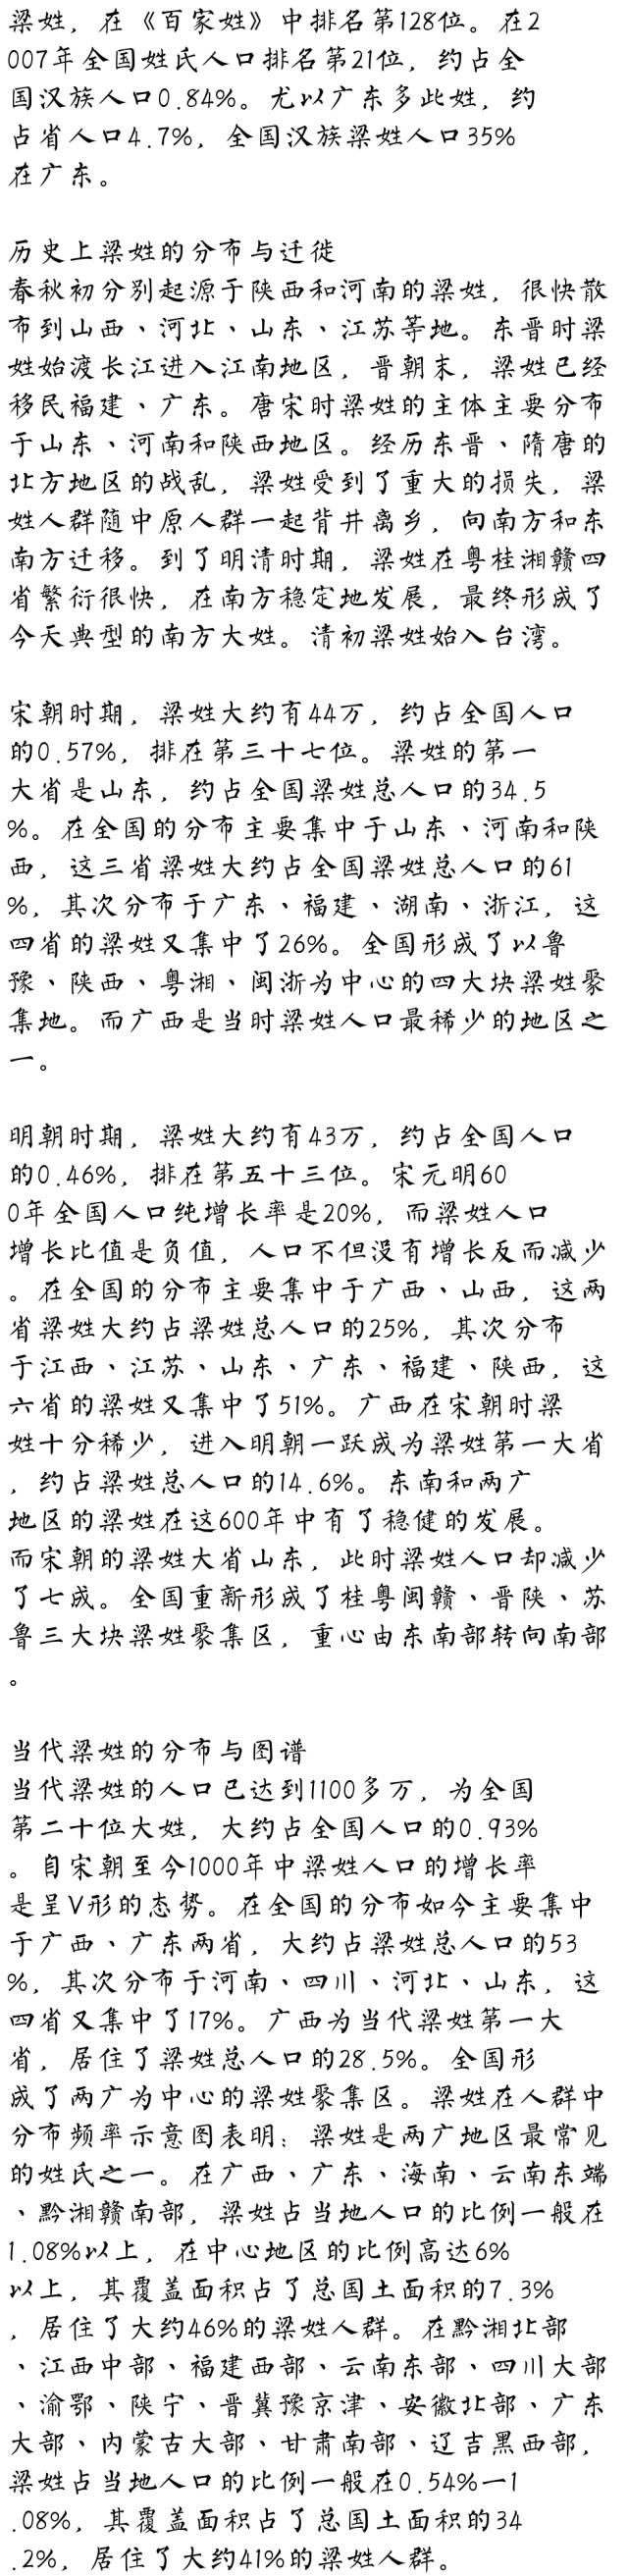 梁姓，在《百家姓》中排名第128位。在2
007年全国姓氏人口排名第21位，约占全
国汉族人口0.84%。尤以广东多此姓，约
占省人口4.7%，全国汉族梁姓人口35%
在广东。
历史上梁姓的分布与迁徙
春秋初分别起源于陕西和河南的梁姓，很快散
布到山西、河北、山东、江苏等地。东晋时梁
姓始渡长江进入江南地区，晋朝末，梁姓已经
移民福建、广东。唐宋时梁姓的主体主要分布
于山东、河南和陕西地区。经历东晋、隋唐的
北方地区的战乱，梁姓受到了重大的损失，梁
姓人群随中原人群一起背井离乡，向南方和东
南方迁移。到了明清时期，梁姓在粤桂湘赣四
省繁衍很快，在南方稳定地发展，最终形成了
今天典型的南方大姓。清初梁姓始入台湾。
宋朝时期，梁姓大约有44万，约占全国人口
的0.57%，排在第三十七位。梁姓的第一
大省是山东，约占全国梁姓总人口的34.5
%。在全国的分布主要集中于山东、河南和陕
西，这三省梁姓大约占全国梁姓总人口的61
%，其次分布于广东、福建、湖南、浙江，这
四省的梁姓又集中了26%。全国形成了以鲁
豫、陕西、粤湘、闽浙为中心的四大块梁姓聚
集地。而广西是当时梁姓人口最稀少的地区之
一。
明朝时期，梁姓大约有43万，约占全国人口
的0.46%，排在第五十三位。宋元明60
0年全国人口纯增长率是20%，而梁姓人口
增长比值是负值，人口不但没有增长反而减少
。在全国的分布主要集中于广西、山西，这两
省梁姓大约占梁姓总人口的25%，其次分布
于江西、江苏、山东、广东、福建、陕西，这
六省的梁姓又集中了51%。广西在宋朝时梁
姓十分稀少，进入明朝一跃成为梁姓第一大省
，约占梁姓总人口的14.6%。东南和两广
地区的梁姓在这600年中有了稳健的发展。
而宋朝的梁姓大省山东，此时梁姓人口却减少
了七成。全国重新形成了桂粤闽赣、晋陕、苏
鲁三大块梁姓聚集区，重心由东南部转向南部
。
当代梁姓的分布与图谱
当代梁姓的人口已达到1100多万，为全国
第二十位大姓，大约占全国人口的0.93%
。自宋朝至今1000年中梁姓人口的增长率
是呈V形的态势。在全国的分布如今主要集中
于广西、广东两省，大约占梁姓总人口的53
%，其次分布于河南、四川、河北、山东，这
四省又集中了17%。广西为当代梁姓第一大
省，居住了梁姓总人口的28.5%。全国形
成了两广为中心的梁姓聚集区。梁姓在人群中
分布频率示意图表明：梁姓是两广地区最常见
的姓氏之一。在广西、广东、海南、云南东端
、黔湘赣南部，梁姓占当地人口的比例一般在
1.08%以上，在中心地区的比例高达6%
以上，其覆盖面积占了总国土面积的7.3%
，居住了大约46%的梁姓人群。在黔湘北部
、江西中部、福建西部、云南东部、四川大部
、渝鄂、陕宁、晋冀豫京津、安徽北部、广东
大部、内蒙古大部、甘肃南部、辽吉黑西部，
梁姓占当地人口的比例一般在0.54%一1
.08%，其覆盖面积占了总国土面积的34
.2%，居住了大约41%的梁姓人群。